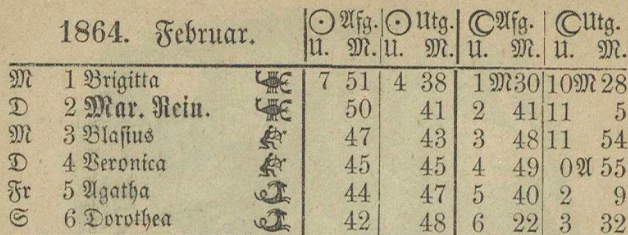 1864. Februar. ☉ Afg. ☉ Utg. ☾ Afg. ☾ Utg.
U. M. U. M. U. M. U. M.
M 1 Brigitta 7 51 4 38 1 M 30 10 M 28
D 2 Mar. Rein. 50 41 2 41 11 5
M 3 Blasius 47 43 3 48 11 54
D 4 Veronica 45 45 4 49 0 A 55
Fr 5 Agatha 44 47 5 40 2 9
S 6 Dorothea 42 48 6 22 3 32